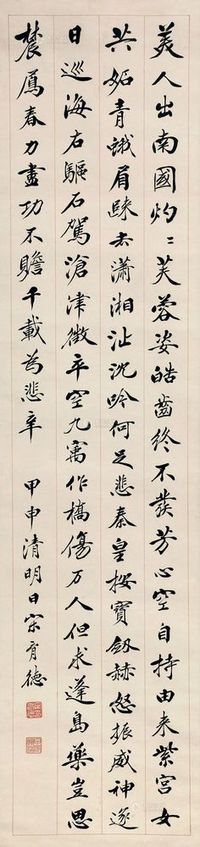 美人出南國灼〻芙蓉姿皓齒終不發芳心空自持由来紫宮女
共妬青蛾眉歸去瀟湘沚沈吟何足悲秦皇按寶劍赫怒振威神逐
日巡海右驅石駕滄津徵卒空九寓作橋傷万人但求蓬島藥豈思
農鳸春力盡功不贍千載为悲辛 甲申清明日宋育德